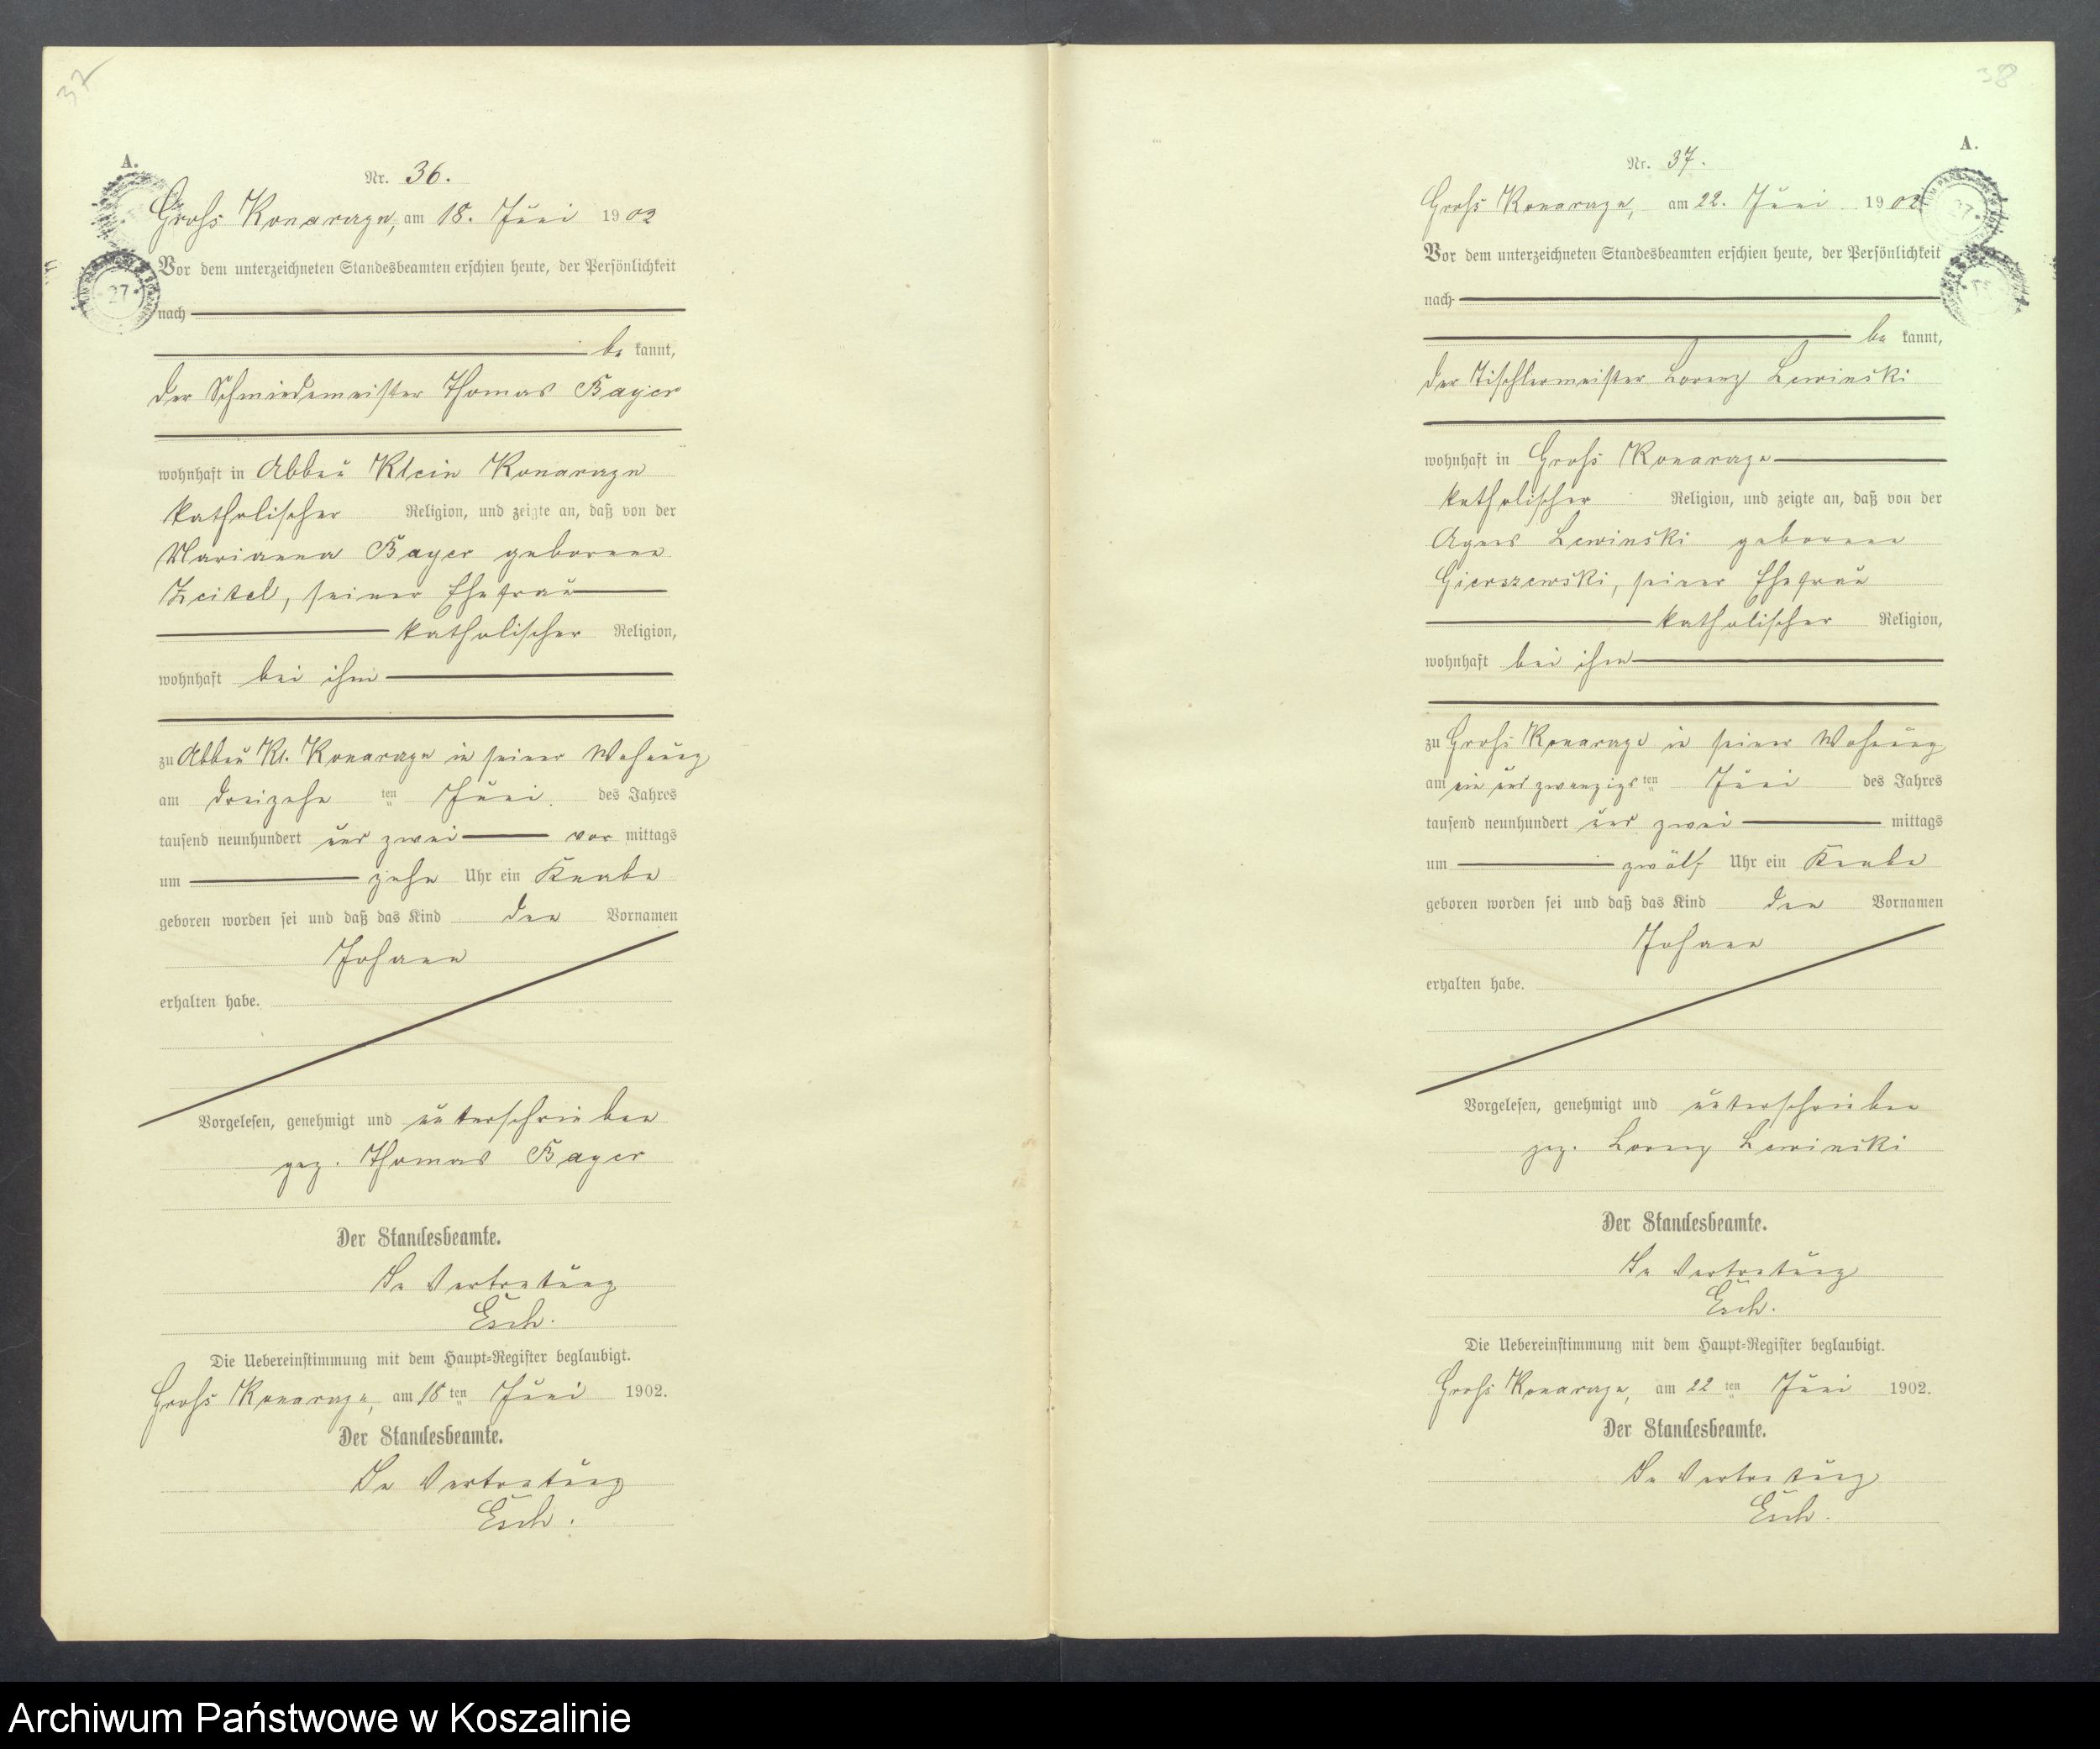 37
A.
Nr. 36.
Groß Konarczyn, am 18. Juni 1902
Vor dem unterzeichneten Standesbeamten erschien heute, der Persönlichkeit
nach
bekannt,
der Schmiedemeister Thomas Bayer
wohnhaft in Abbau Klein Konarczyn
katholischer Religion, und zeigte an, daß von der
Marianna Bayer geborenen
Zeitel, seiner Ehefrau
katholischer Religion,
wohnhaft bei ihm
zu Abbau Kl. Konarczyn in seiner Wohnung
am dreizehnten Juni des Jahres
tausend neunhundert und zwei vormittags
um zehn Uhr ein Knabe
geboren worden sei und daß das Kind den Vornamen
Johann
erhalten habe.
Vorgelesen, genehmigt und unterschrieben
gez. Thomas Bayer
Der Standesbeamte.
In Vertretung
Esch.
Die Uebereinstimmung mit dem Haupt-Register beglaubigt.
Groß Konarczyn, am 18ten Juni 1902.
Der Standesbeamte.
In Vertretung
Esch.
27
38
A.
Nr. 37.
Groß Konarczyn, am 22. Juni 1902
Vor dem unterzeichneten Standesbeamten erschien heute, der Persönlichkeit
nach
bekannt,
der Tischlermeister Lorenz Lewinski
wohnhaft in Groß Konarczyn
katholischer Religion, und zeigte an, daß von der
Agnes Lewinski geborenen
Gierszewski, seiner Ehefrau
katholischer Religion,
wohnhaft bei ihm
zu Groß Konarczyn in seiner Wohnung
am ein und zwanzigsten Juni des Jahres
tausend neunhundert und zwei mittags
um zwölf Uhr ein Knabe
geboren worden sei und daß das Kind den Vornamen
Johann
erhalten habe.
Vorgelesen, genehmigt und unterschrieben
gez. Lorenz Lewinski
Der Standesbeamte.
In Vertretung
Esch.
Die Uebereinstimmung mit dem Haupt-Register beglaubigt.
Groß Konarczyn, am 22ten Juni 1902.
Der Standesbeamte.
In Vertretung
Esch.
27
Archiwum Państwowe w Koszalinie